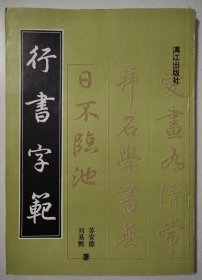 漓江出版社
行書字範
受畫為情常
拜石學書無
日不臨池
苏安德
刘易甄
著